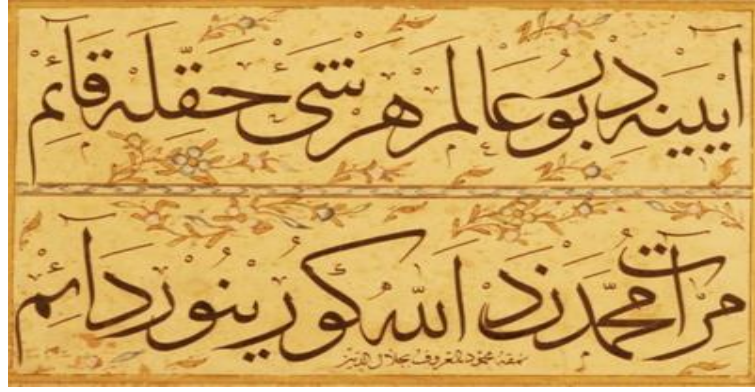 آيينَه دِر بُو عَالَم هَر شَیْء حَقّلَه قَائِم
مِرآتِ مُحمَّدْدَن اَللّٰه كورُينُور دَائِم
نمقه محمود المعروف بجلال الدين